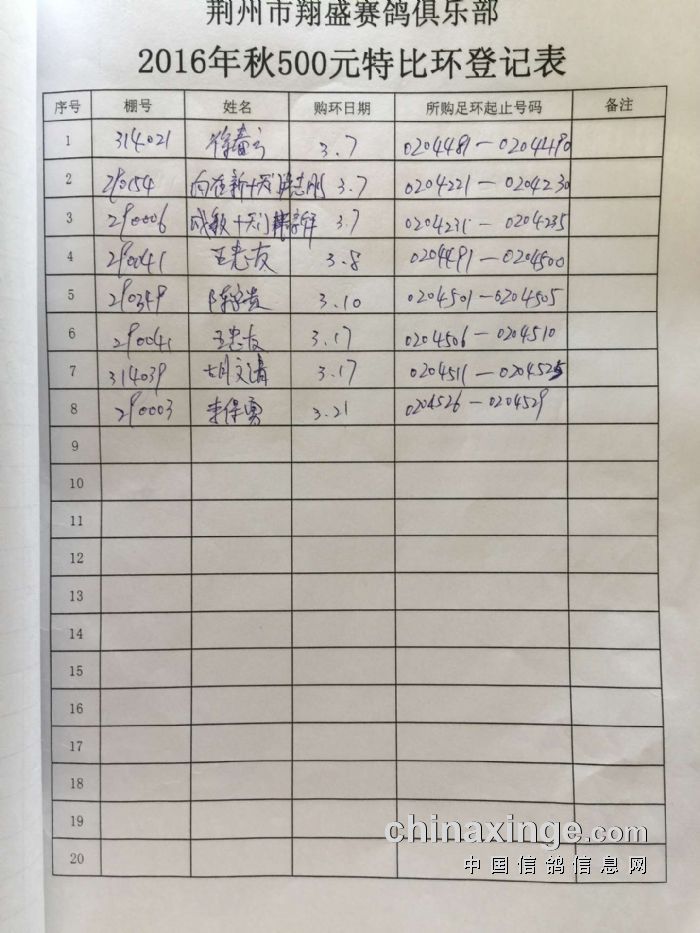 荆州市翔盛赛鸽俱乐部
2016年秋500元特比环登记表
序号 棚号 姓名 购环日期 所购足环起止号码 备注
1 314021 徐 3.7 0204481—0204490
2 290154 向在新十天门 志刚 3.7 0204221—0204230
3 290006 成毅十天门 3.7 0204231—0204235
4 290041 王忠友 3.8 0204491—0204500
5 290349 陈 贵 3.10 0204501—0204505
6 290041 王忠友 3.17 0204506—0204510
7 314039 胡文清 3.17 0204511—0204525
8 290003 李保勇 3.21 0204526—0204529
9
10
11
12
13
14
15
16
17
18
19
20
chinaxinge.com
中国信鸽信息网